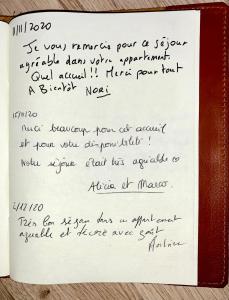 11/11/2020
Je vous remercie pour ce séjour
agréable dans votre appartement.
Quel accueil!! Merci pour tout
A Bientôt NORI
15/11/20
Merci beaucoup pour cet accueil
et pour votre disponibilité !
Notre séjour était très agréable
Alicia et Marco.
4/12/20
Très bon séjour dans un appartement
agréable et décoré avec goût